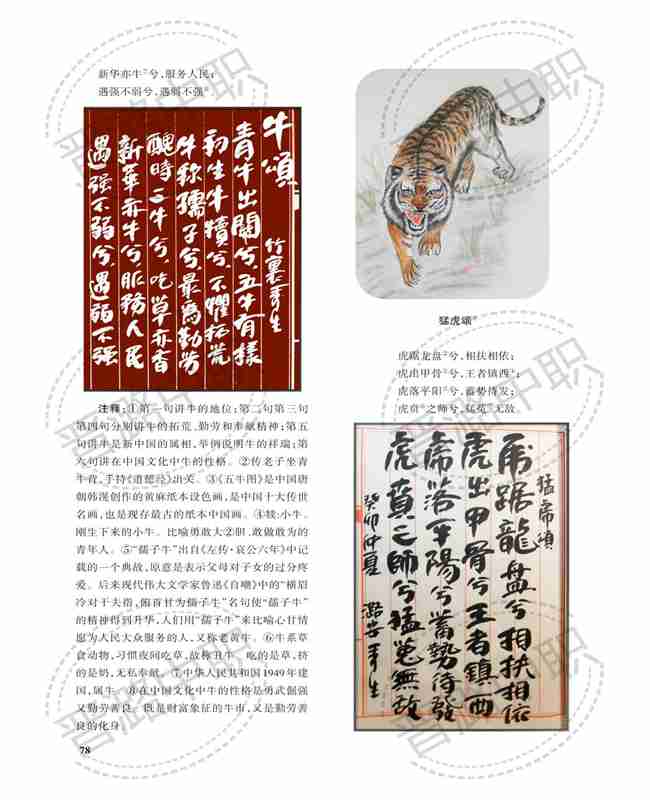 新华亦牛⑦兮，服务人民；
遇强不弱兮，遇弱不强⑧
牛頌
竹裏秀生
青牛出關兮，五牛有樣
初生牛犢兮，不懼拓荒
牛称孺子兮，最爲勤劳
醜時二牛兮，吃草亦香
新華亦牛兮，服務人民
遇强不弱兮，遇弱不强
注释：①第一句讲牛的地位；第二句第三句
第四句分别讲牛的拓荒、勤劳和奉献精神；第五
句讲牛是新中国的属相，举例说明牛的祥瑞；第
六句讲在中国文化中牛的性格。②传老子坐青
牛背，手持《道德经》出关。③《五牛图》是中国唐
朝韩滉创作的黄麻纸本设色画，是中国十大传世
名画，也是现存最古的纸本中国画。④犊：小牛。
刚生下来的小牛。比喻勇敢大②胆，敢做敢为的
青年人。⑤“孺子牛”出自《左传·哀公六年》中记
载的一个典故，原意是表示父母对子女的过分疼
爱。后来现代伟大文学家鲁迅《自嘲》中的“横眉
冷对千夫指，俯首甘为孺子牛”名句使“孺子牛”
的精神得到升华，人们用“孺子牛”来比喻心甘情
愿为人民大众服务的人，又称老黄牛。⑥牛系草
食动物，习惯夜间吃草，故称丑牛。吃的是草，挤
的是奶，无私奉献。⑦中华人民共和国1949年建
国，属牛。⑧在中国文化中牛的性格是勇武倔强
又勤劳善良。既是财富象征的牛市，又是勤劳善
良的化身。
78
猛虎颂
虎踞龙盘②兮，相扶相依；
虎出甲骨③兮，王者镇西④；
虎落平阳⑤兮，蓄势待发；
虎贲⑥之师兮，猛苑⑦无敌。
猛虎頌
虎踞龍盘兮相扶相依
虎出甲骨兮王者鎮西
虎落平陽兮蓄勢待發
虎賁之師兮猛苑無敌
癸卯仲夏
潞安秀生
晋路中职
晋路中职
晋路中职
晋路中职
晋路中职
晋路中职